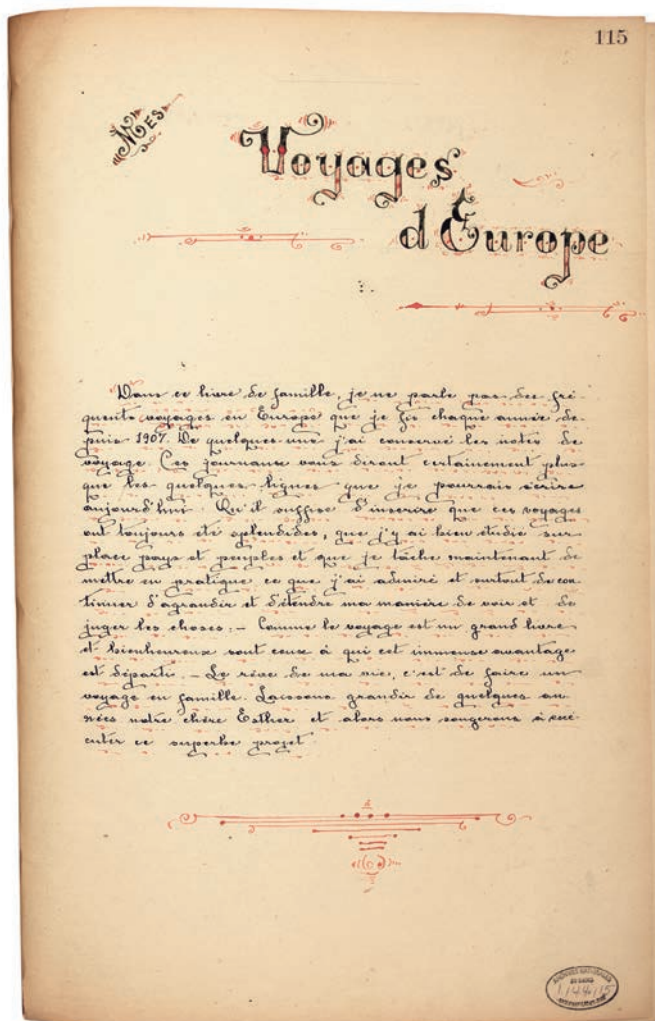 115
MES
Voyages
d'Europe
Dans ce livre de famille, je ne parle pas des fré-
quents voyages en Europe que je fis chaque année de-
puis 1907. De quelques uns j'ai conservé les notes de
voyage. Ces journaux vous diront certainement plus
que les quelques lignes que je pourrais écrire
aujourd'hui. Qu'il suffise d'inscrire que ces voyages
ont toujours été splendides, que j'y ai bien étudié sur
place pays et peuples et que je tâche maintenant de
mettre en pratique ce que j'ai admiré et surtout de con-
tinuer d'agrandir et d'étendre ma manière de voir et de
juger les choses. – Comme le voyage est un grand livre
et bienheureux sont ceux à qui cet immense avantage
est départi. – Le rêve de ma vie, c'est de faire un
voyage en famille. Laissons grandir de quelques an-
nées notre chère Esther et alors nous songerons à exé-
cuter ce superbe projet.
ARCHIVES NATIONALES